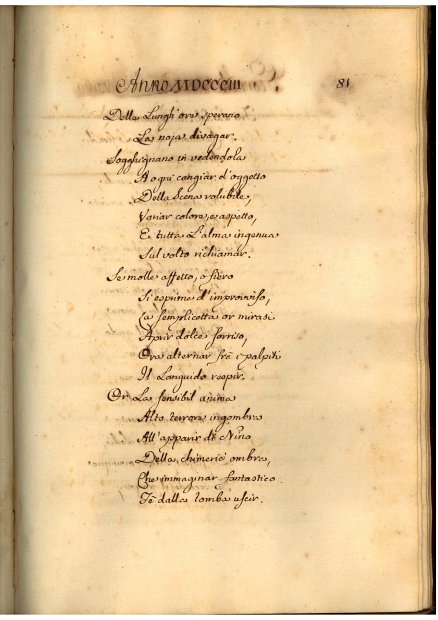 Anno MDCCCIII. 81
Delle Lungh'ore sperano
La noja divagar.
Sogghignano in vedendola
A ogni cangiar d'oggetto
Della Scena volubile,
Variar colore, e aspetto,
E tutta L'alma ingenua
Sul volto richiamar.
Se molle affetto, o fiero
Si esprime d'improvviso,
La semplicetta or mirasi
Aprir dolce sorriso,
Ora alternar frà i palpiti
Il Languido respir.
Or La sensibil anima
Alto terrore ingombra
All'apparir di Nino
Della chimeric' ombra,
Che immaginar fantastico
Fè dalla tomba uscir.